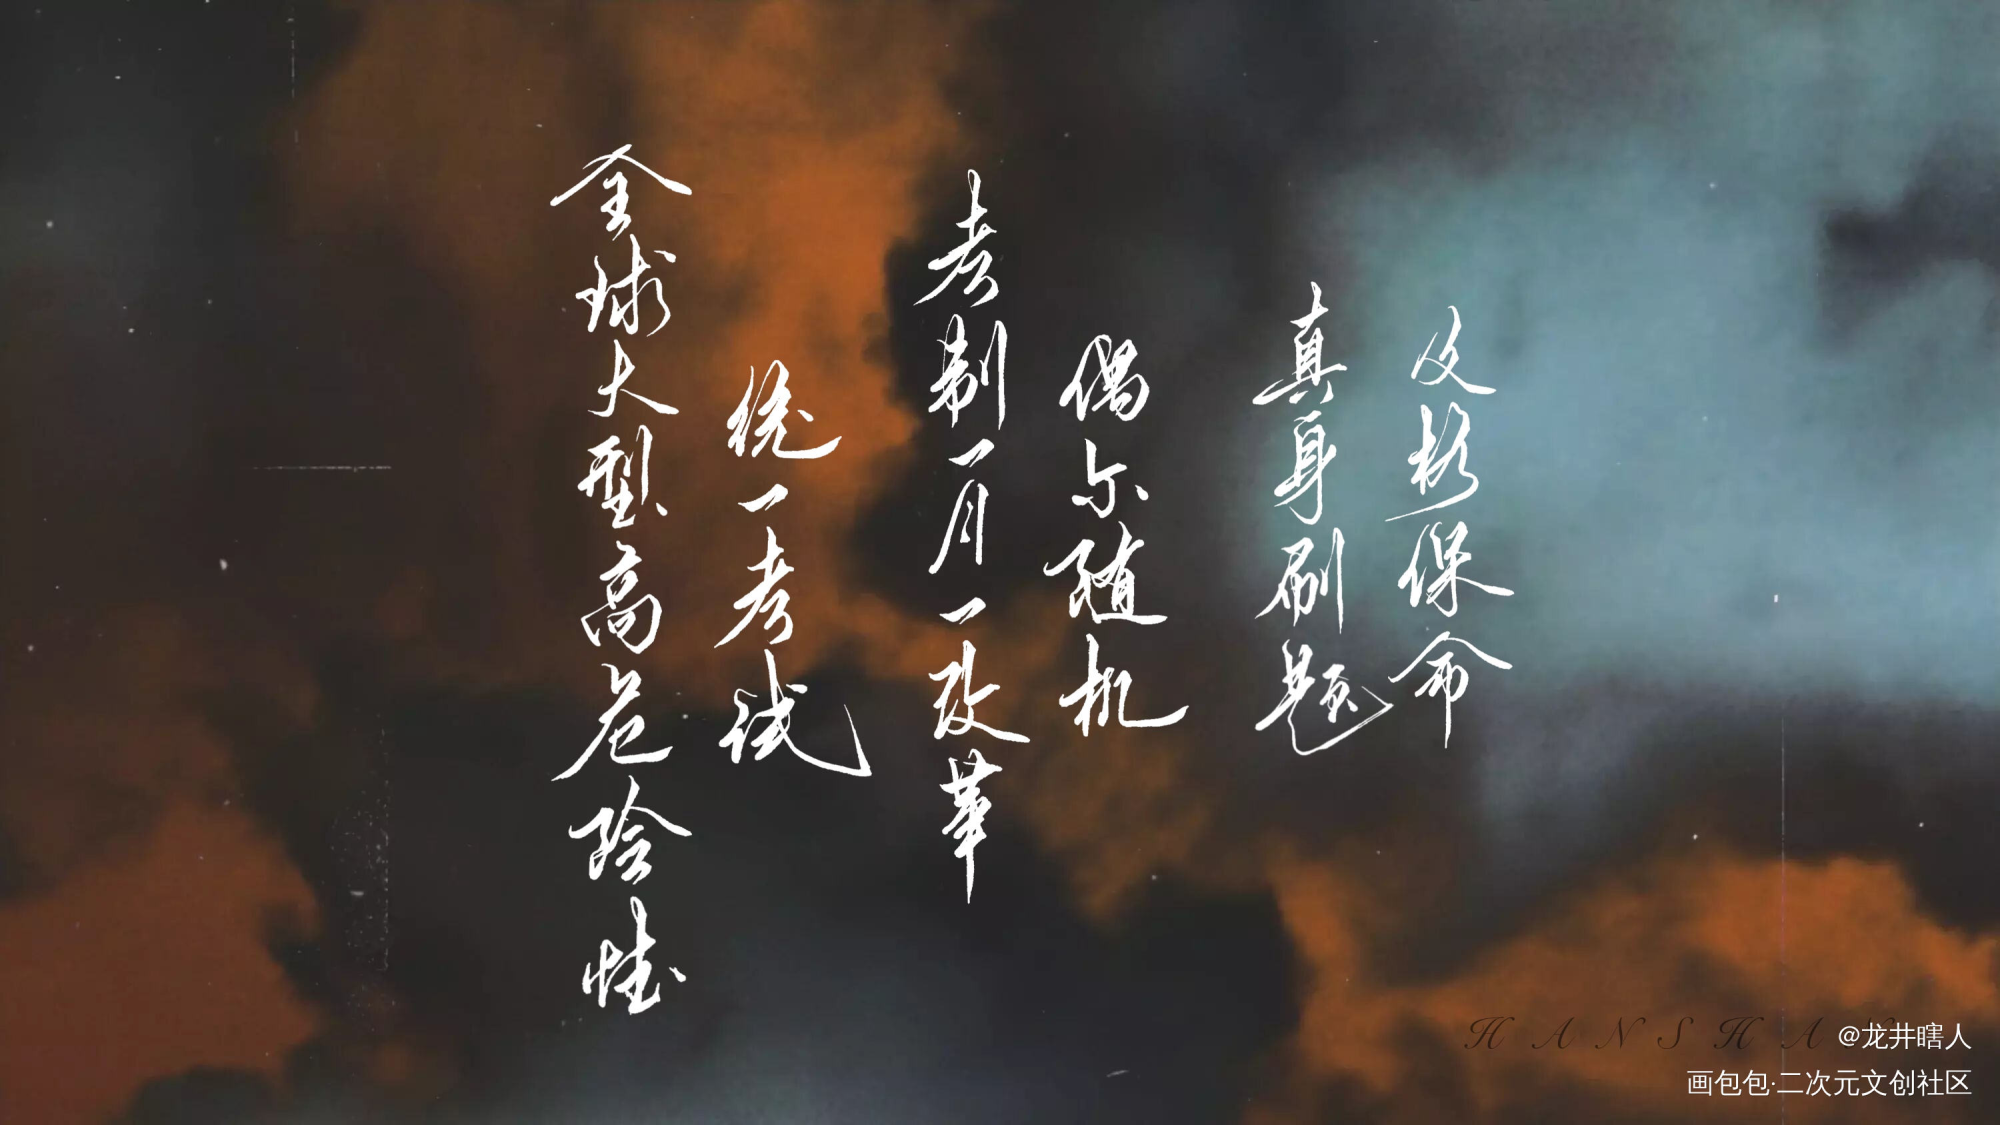 全球大型高危险性
统一考试
考制一月一改革
偶尔随机
真身刷题
及格保命
HANSHA
@龙井瞎人
画包包·二次元文创社区